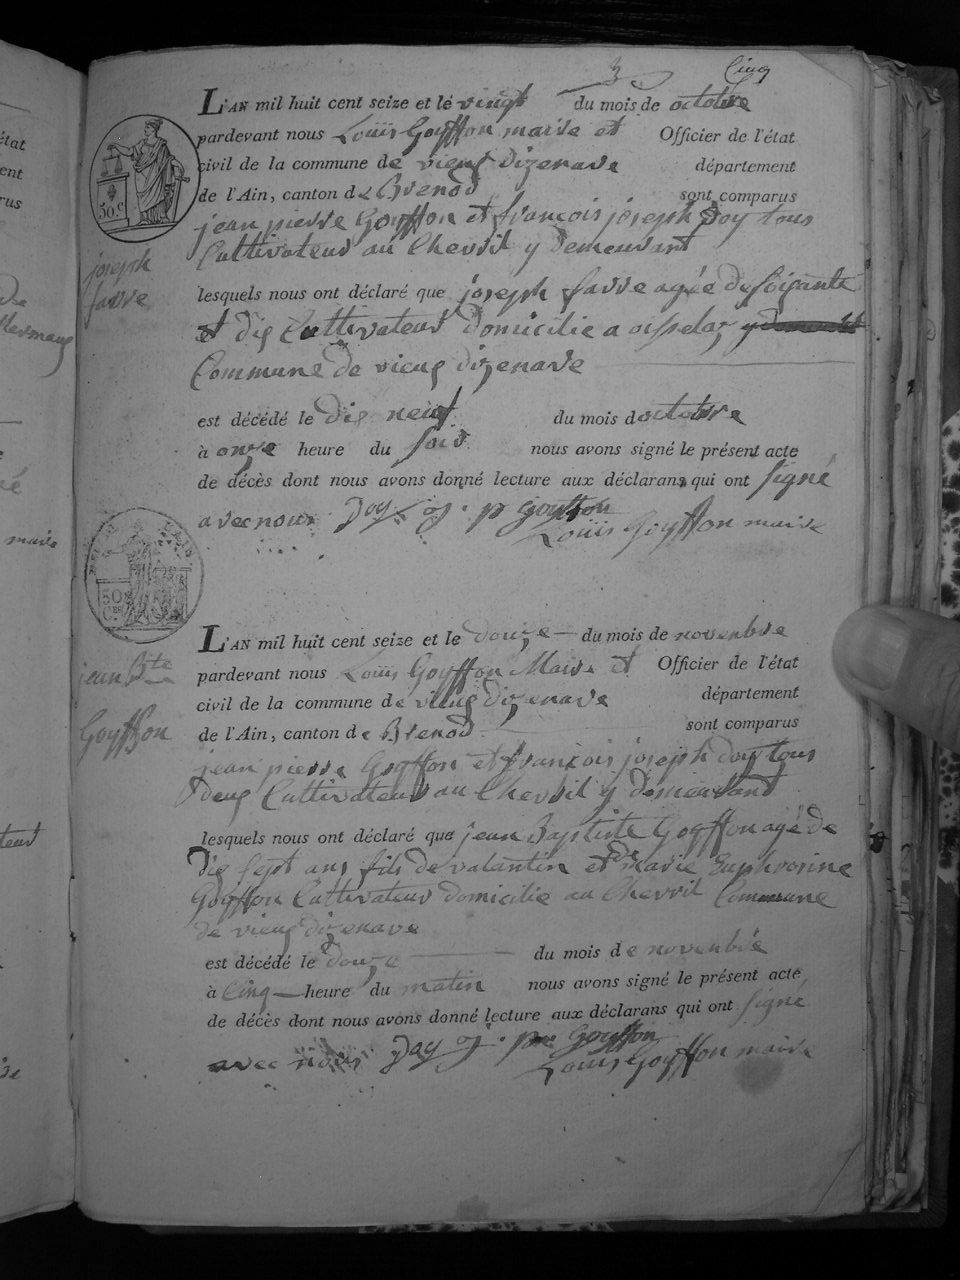 3 Cinq
L'AN mil huit cent seize et le vingt du mois de octobre
pardevant nous Louis Goyffon maire et Officier de l'état
civil de la commune de vieux dizenave département
de l'Ain, canton de Brenod sont comparus
50.c
jean pierre Goyffon et françois joseph Joy tous
Cultivateur au Chevril y demeurant
joseph
favre
lesquels nous ont déclaré que joseph favre agée de soixante
et dix Cultivateur domicilie a oisselaz y demeurant
Commune de vieux dizenave
est décédé le dix neuf du mois doctobre
à onze heure du soir nous avons signé le présent acte
de décès dont nous avons donné lecture aux déclarans, qui ont signé
avec nous Joy j. p goyffon
Louis Goyffon maire
50
Ces
L'AN mil huit cent seize et le douze du mois de novenbre
jean Bte
Goyffon
pardevant nous Louis Goyffon Maire et Officier de l'état
civil de la commune de vieux dizenave département
de l'Ain, canton de Brenod sont comparus
jean pierre Goyffon et françois joseph Joy tous
deux Cultivateur au Chevril y demeurant
lesquels nous ont déclaré que jean Baptiste Goyffon agé de
dix sept ans fils de valantin et de marie Euphrosine
Goyffon Cultivateur domicilie au Chevril Commune
de vieux dizenave
est décédé le douze du mois de novenbre
à Cinq heure du matin nous avons signé le présent acte
de décès dont nous avons donné lecture aux déclarans qui ont signé
avec nous Joy j. pre Goyffon
Louis Goyffon maire